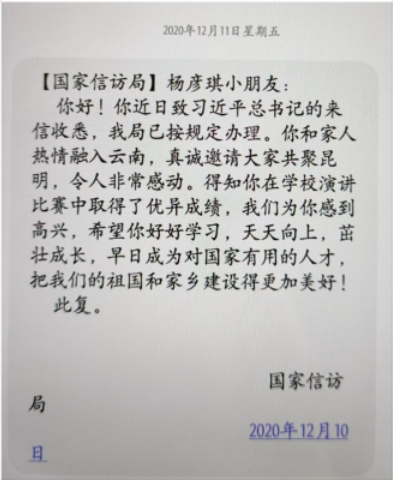 2020年12月11日星期五
【国家信访局】杨彦琪小朋友：
你好！你近日致习近平总书记的来
信收悉，我局已按规定办理。你和家人
热情融入云南，真诚邀请大家共聚昆
明，令人非常感动。得知你在学校演讲
比赛中取得了优异成绩，我们为你感到
高兴，希望你好好学习，天天向上，茁
壮成长，早日成为对国家有用的人才，
把我们的祖国和家乡建设得更加美好！
此复。
国家信访
局
2020年12月10
日